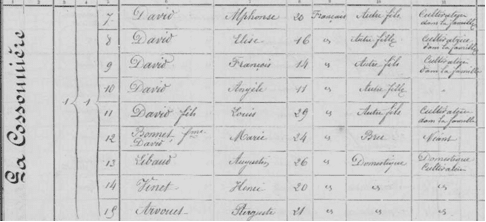 La Cossonnière
7 David Alphonse 20 Français Autre fils Cultivateur dans la famille
1 1 8 David Elise 16 " Autre fille Cultivatrice dans la famille
9 David François 14 " Autre fils Cultivateur dans la famille
10 David Angèle 11 " Autre fille "
11 David fils Louis 29 " Autre fils Cultivateur dans la famille
12 Bonnet fme David Marie 24 " Bru Néant
13 Libaud Augustin 26 " Domestique Domestique Cultivateur
14 Vinet Henri 20 " " "
15 Arvouet Auguste 21 " " "